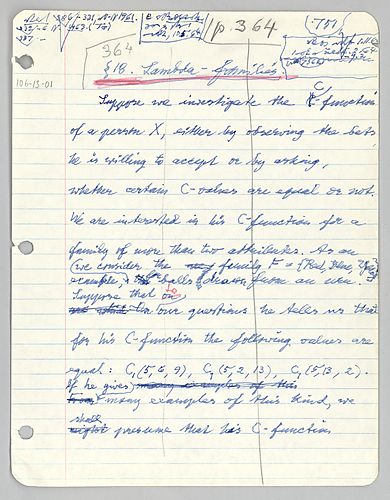 p. 364
364
§18. Lambda-families.
106-13-01
Suppose we investigate the C-function
of a person X, either by observing the bets
he is willing to accept or by asking,
whether certain C-values are equal or not.
We are interested in his C-function for a
family of more than two attributes. As an
example, (we consider the family F = {Red, Blue,
balls drawn from an urn.
Suppose that to our questions he tells us that
for his C-function the following values are
equal: C₁(5, 6, 9), C₁(5, 2, 13), C₁(5, 13, 2).
If he gives many examples of this
many examples of this kind, we
shall presume that his C-function